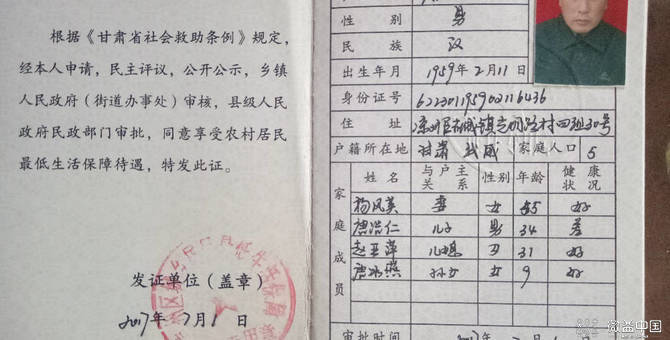 根据《甘肃省社会救助条例》规定，
经本人申请，民主评议，公开公示，乡镇
人民政府（街道办事处）审核，县级人民
政府民政部门审批，同意享受农村居民
最低生活保障待遇，特发此证。
发证单位（盖章）
2017年7月1日
性 别 男
民 族 汉
出生年月 1959年2月11日
身份证号 622301195902116436
住 址 村四组30号
户籍所在地 甘肃 武威 家庭人口 5
家庭成员
姓 名 与户主关系 性别 年龄 健康状况
杨凤英 妻 女 55 好
唐浩仁 儿子 男 34 差
赵亚萍 儿媳 女 31 好
唐 燕 孙女 女 9 好
审批时间 2017年7月1日
微益中国